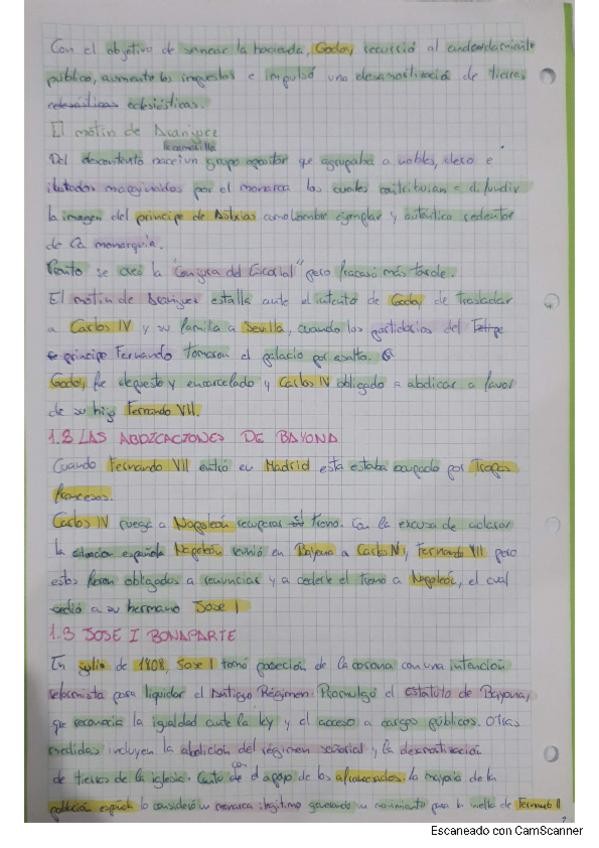 Con el objetivo de sanear la hacienda, Godoy recurrió al endeudamiento
público, aumento los impuestos e impulsó una desamortización de tierras
eclesiásticas.
El motín de Aranjuez
camarilla
Del descontento nace un grupo opositor que agrupaba a nobles, clero e
ilustrados marginados por el monarca los cuales contribuian a difundir
la imagen del principe de Asturias como hombre ejemplar y autentico redentor
de la monarquia.
Pronto se creó la "Conjura del Escorial" pero fracasó más tarde.
El motin de Aranjuez estalla ante el intento de Godoy de trasladar
a Carlos IV y su familia a Sevilla, cuando los partidarios del
principe Fernando tomaron el palacio por asalto.
Godoy fue depuesto y encarcelado y Carlos IV obligado a abdicar a favor
de su hijo Fernando VII.
1.2 LAS ABDICACIONES DE BAYONA
Cuando Fernando VII entró en Madrid esta estaba ocupado por Tropas
francesas.
Carlos IV ruega a Napoleón recuperar el trono. Con la excusa de
la situacion española Napoleón reunió en Bayona a Carlos IV, Fernando VII pero
estos fueron obligados a renunciar y a cederle el trono a Napoleón, el cual
cedió a su hermano Jose I
1.3 JOSE I BONAPARTE
En julio de 1808, Jose I tomó poseción de la corona con una intención
reformista para liquidar el Antiguo Régimen. Promulgó el Estatuto de Bayona,
que reconocia la igualdad ante la ley y el acceso a cargos públicos. Otras
medidas incluyen la abolición del régimen señorial y la desamortización
de tierras de la iglesia. con el apoyo de los afrancesados. la mayoia de la
población española lo consideró un monarca ilegitimo generando un movimiento para la vuelta de Fernando VII
Escaneado con CamScanner